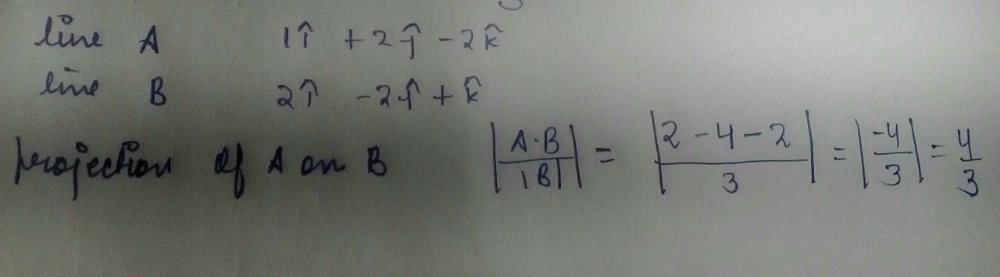 line A 1î + 2ĵ - 2k̂
line B 2î - 2ĵ + k̂
projection of A on B |A·B/|B|| = |2 - 4 - 2/3| = |-4/3| = 4/3